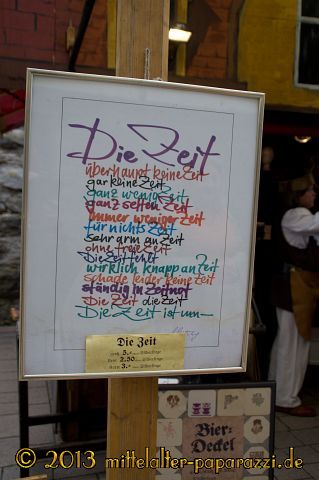 Die Zeit
überhaupt keine Zeit
gar keine Zeit
ganz wenig Zeit
ganz selten Zeit
immer weniger Zeit
für nichts Zeit
sehr arm an Zeit
ohne freie Zeit
Die Zeit fehlt
wirklich knapp an Zeit
schade leider keine Zeit
ständig in Zeitnot
Die Zeit die Zeit
Die Zeit ist um
Die Zeit
5.-
2.50
3.-
Bier-
Deckel
© 2013 mittelalter-paparazzi.de ©